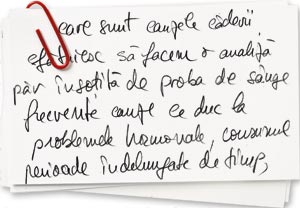 care sunt cauzele căderii
să facem o analiză
păr însoțită de proba de sânge
frecvente cauze ce duc la
problemele hormonale, consumul
perioade îndelungate de timp,